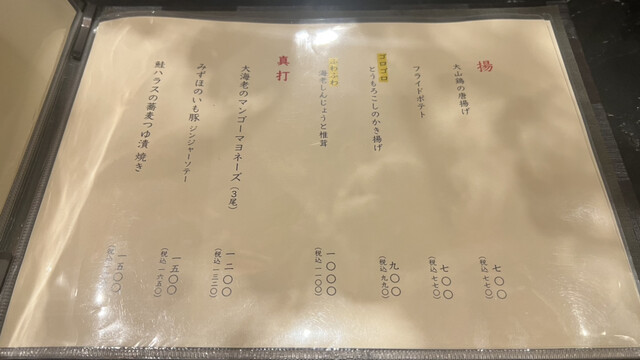 揚
大山鶏の唐揚げ
七〇〇
(税込 七七〇)
フライドポテト
七〇〇
(税込 七七〇)
ゴロゴロ
とうもろこしのかき揚げ
九〇〇
(税込 九九〇)
ふわふわ
海老しんじょうと椎茸
一〇〇〇
(税込 一一〇〇)
真打
大海老のマンゴーマヨネーズ(3尾)
一二〇〇
(税込 一三二〇)
みずほのいも豚 ジンジャーソテー
一五〇〇
(税込 一六五〇)
鮭ハラスの蕎麦つゆ漬焼き
一五〇〇